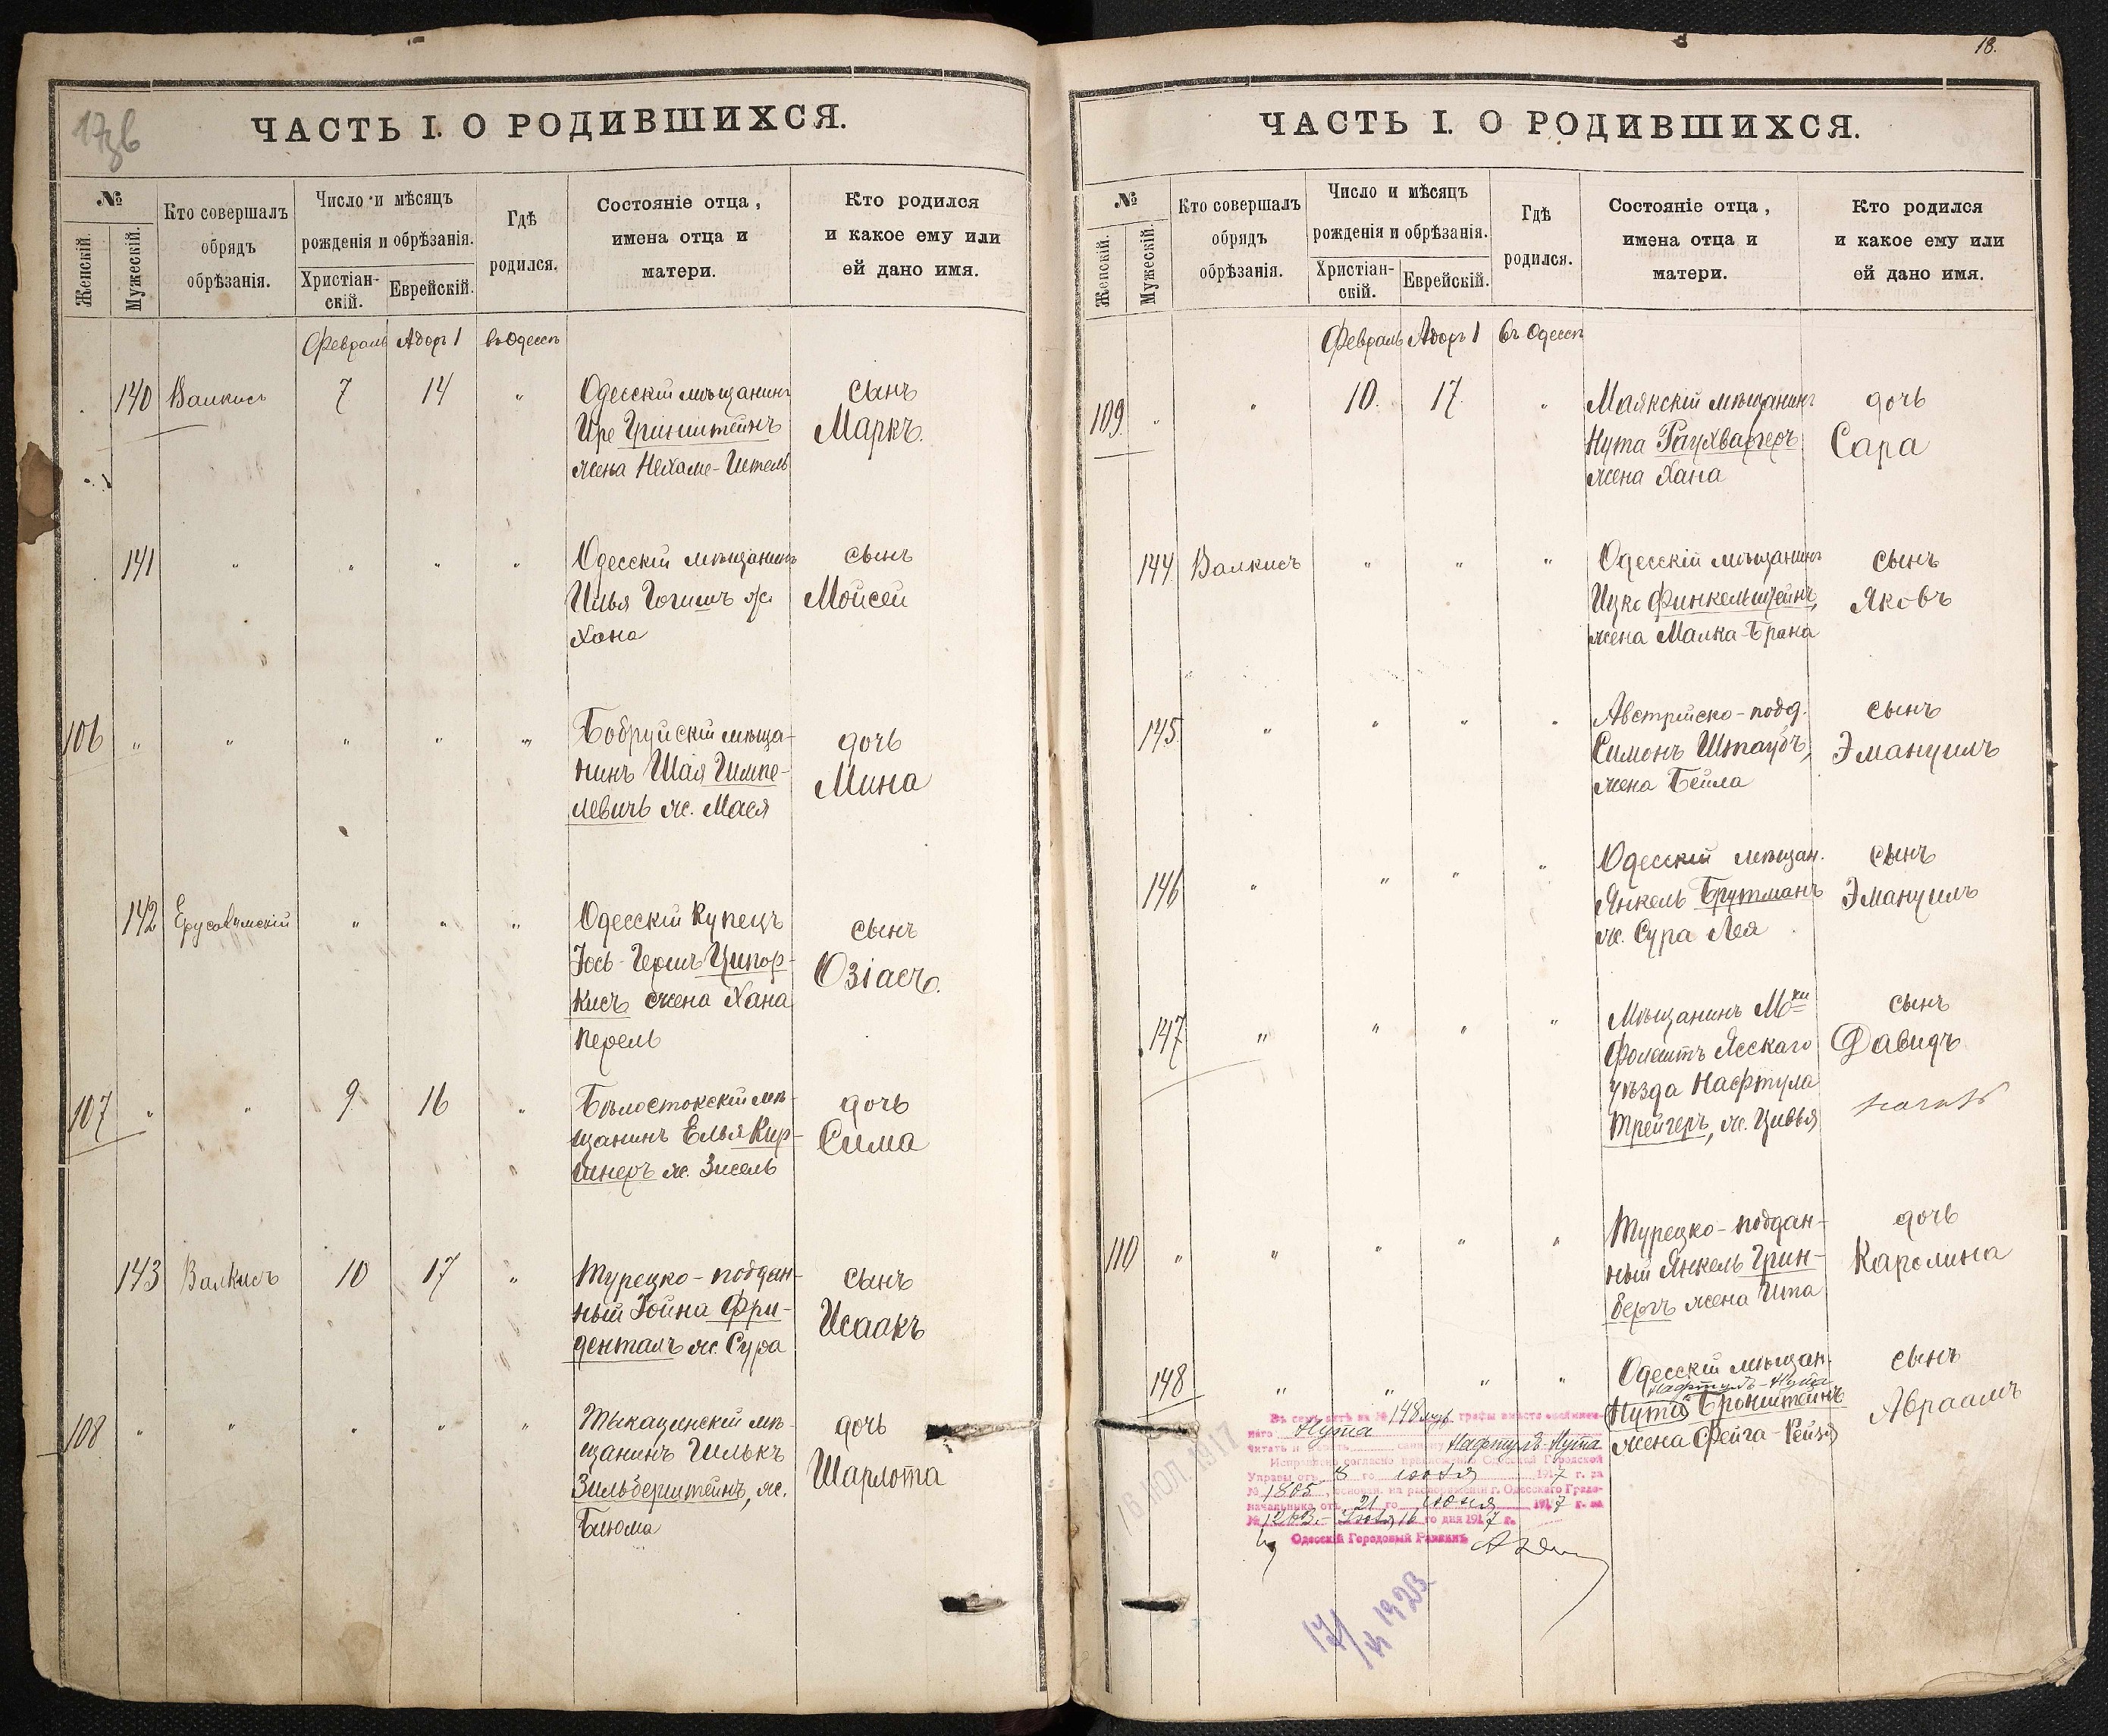 ЧАСТЬ I. О РОДИВШИХСЯ.
№
Женскій.
Мужескій.
Кто совершалъ
обрядъ
обрѣзанія.
Число и мѣсяцъ
рожденія и обрѣзанія.
Христіан-
скій.
Еврейскій.
Гдѣ
родился.
Состояніе отца,
имена отца и
матери.
Кто родился
и какое ему или
ей дано имя.
Февраль Адоръ 1 въ Одессѣ
140 Валкисъ 7 14 " Одесскій мѣщанинъ сынъ
Ире Гринштейнъ Маркъ.
жена Нехаме-Ител
141 " " " " Одесскій мѣщанинъ сынъ
Илья ж. Мойсей
Хана
106 " " " " " Бобруйскій мѣща- дочь
нинъ Шая Гимпе- Мина
левичъ ж. Мася
142 Ерусалимскій " " " Одесскій купецъ сынъ
Іось-Гершъ Ципор- Озіасъ.
кисъ жена Хана
Перель
107 " " 9 16 " Бѣлостокскій мѣ- дочь
щанинъ Елья Кир- Сима
шнеръ ж. Зисель
143 Валкисъ 10 17 " Турецко-поддан- сынъ
ный Іойна Фри- Исаакъ
денталъ ж. Сура
108 " " " " " Тыкацинскій мѣ- дочь
щанинъ Шарлота
Зильберштейнъ, ж.
Блюма
18.
ЧАСТЬ I. О РОДИВШИХСЯ.
№
Женскій.
Мужескій.
Кто совершалъ
обрядъ
обрѣзанія.
Число и мѣсяцъ
рожденія и обрѣзанія.
Христіан-
скій.
Еврейскій.
Гдѣ
родился.
Состояніе отца,
имена отца и
матери.
Кто родился
и какое ему или
ей дано имя.
Февраль Адоръ 1 въ Одессѣ
109 " " 10. 17. " Маякскій мѣщанинъ дочь
Нута Раухвергеръ Сара
жена Хана
144 Валкисъ " " " Одесскій мѣщанинъ сынъ
Ицко Финкельштейнъ, Яковъ
жена Малка-Брана
145 " " " " Австрійско-подд. сынъ
Симонъ Штаубъ, Эмануилъ
жена Бейла
146 " " " " Одесскій мѣщан. сынъ
Янкель Брутманъ Эмануилъ
ж. Сура Лея
147 " " " " Мѣщанинъ М-ки сынъ
Фолештъ Ясскаго Давидъ
уѣзда Нафтула
Трейгеръ, ж. Цивья
110 " " " " " Турецко-поддан- дочь
ный Янкель Грин- Каролина
бергъ жена Ита
148 " " " " Одесскій мѣщан. сынъ
Нафтулъ-Нута
Нута Бронштейнъ Авраамъ
жена Фейга-Рейзя
Въ семъ актѣ за № 148 муж. графы вмѣсто
Нута
читать Нафтулъ-Нута
Исправлено согласно Одесской Городской
Управы отъ 8 го іюля 1917 г. за
№ 1805, основан. на распоряженіи г. Одесскаго Градо-
начальника отъ 21 го іюня 1917 г. за
№ Іюля 16 го дня 1917 г.
Одесскій Городовый Раввинъ
16 ІЮЛ. 1917